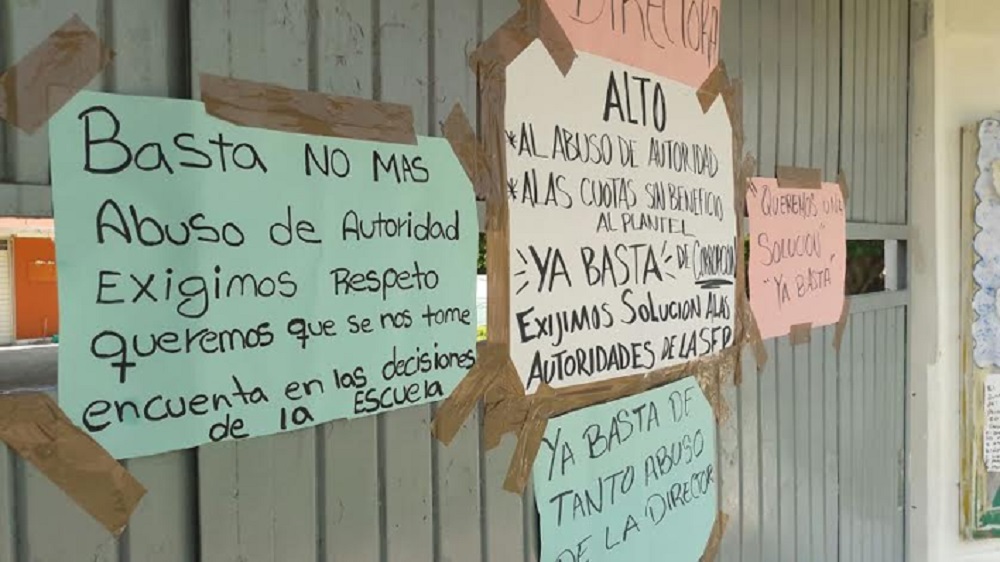 Basta NO MAS
Abuso de Autoridad
Exigimos Respeto
queremos que se nos tome
encuenta en las decisiones
de la Escuela
DIRECTORA
ALTO
*AL ABUSO DE AUTORIDAD
*ALAS CUOTAS SIN BENEFICIO
AL PLANTEL
YA BASTA DE CORRUPCION
EXIJIMOS SOLUCION ALAS
AUTORIDADES DE LA SEP
"QUEREMOS UNA
SOLUCION"
"YA BASTA"
YA BASTA DE
TANTO ABUSO
DE LA DIRECTOR